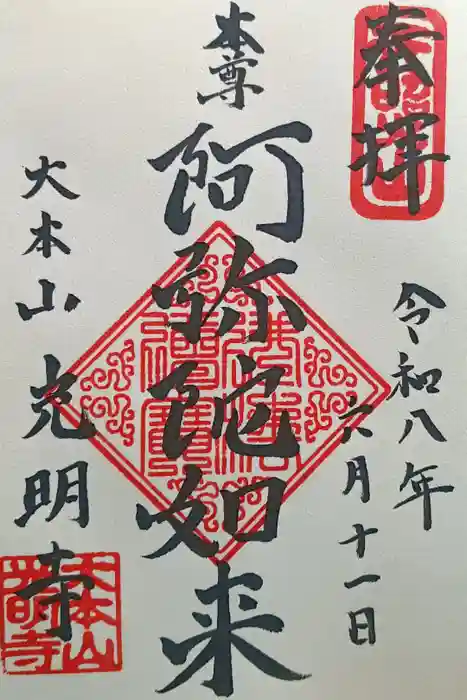 奉拝
令和八年
六月十一日
本尊
阿弥陀如来
大本山 光明寺
大本山
光明寺